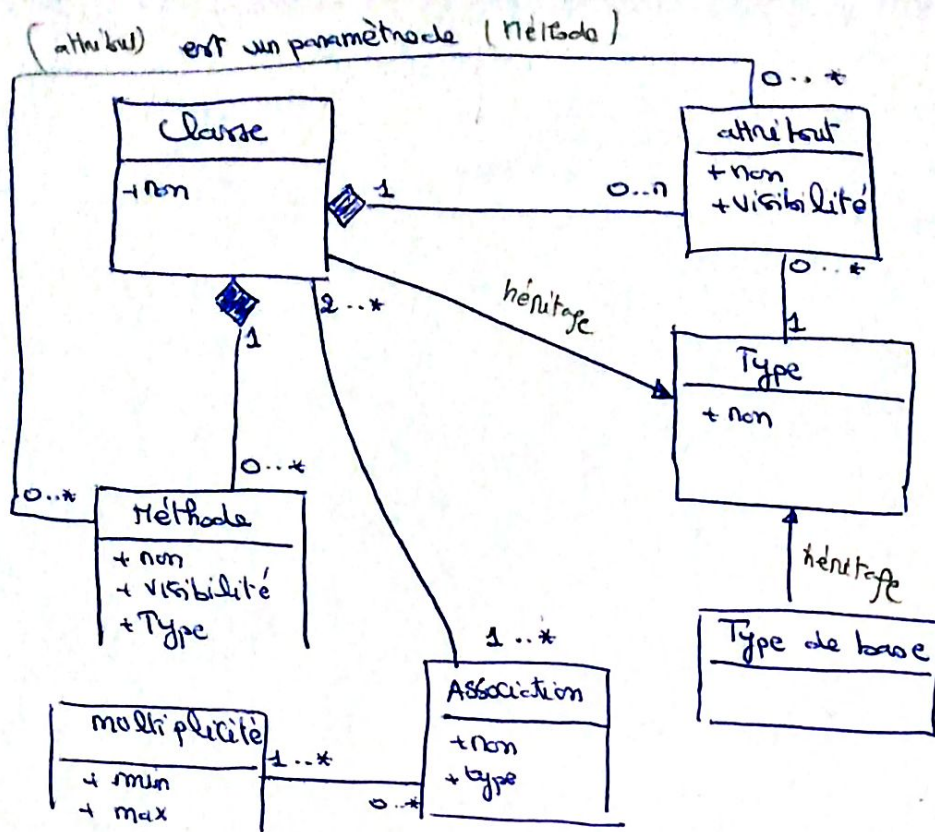 (attribut) est un paramètre de (Méthode)
0..*
Classe
+ non
1
0..n
attribut
+ non
+ visibilité
0..*
1
2..*
héritage
1
Type
+ non
0..*
0..*
Méthode
+ non
+ visibilité
+ Type
héritage
1..*
Type de base
Association
+ non
+ type
multiplicité
+ min
+ max
1..*
0..*